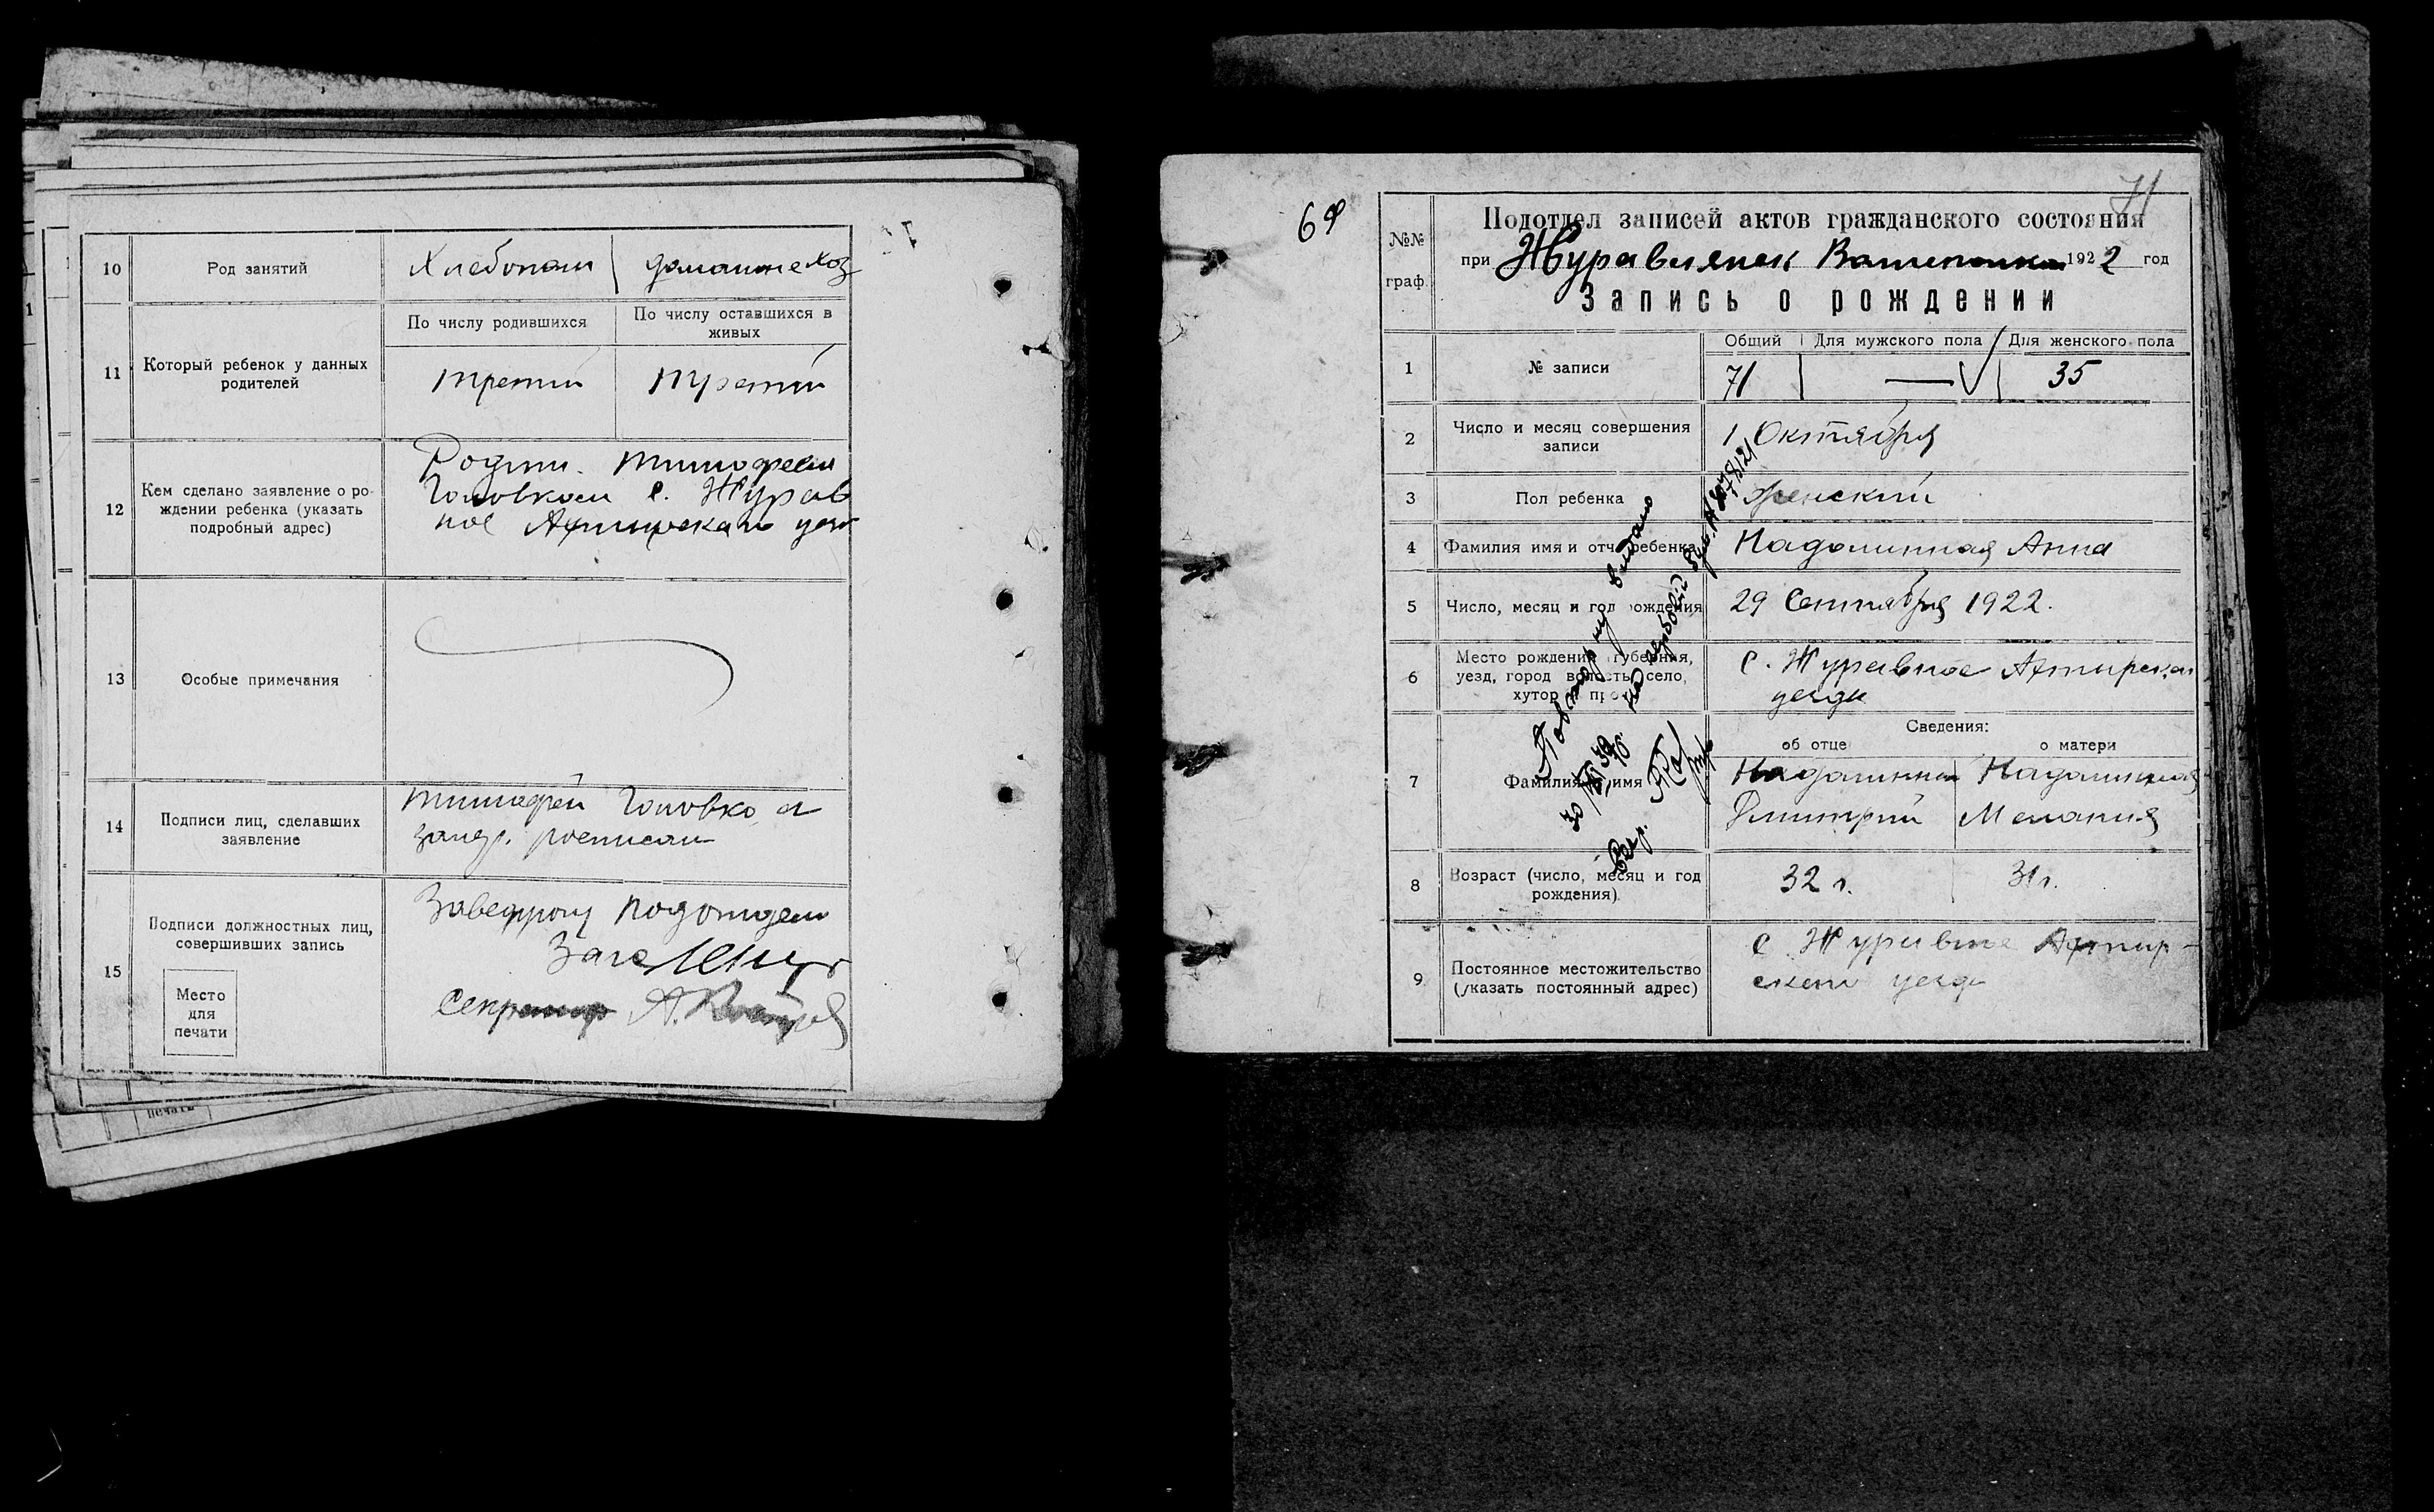 10
Род занятий
Хлебопаш
домашнехоз
11
Который ребенок у данных
родителей
По числу родившихся
По числу оставшихся в
живых
третий
третий
12
Кем сделано заявление о ро-
ждении ребенка (указать
подробный адрес)
Родит. Тимофеем
Головком с. Журав
ное Ахтырскаго уезд
13
Особые примечания
14
Подписи лиц, сделавших
заявление
Тимофей Головко, а
росписал
15
Подписи должностных лиц,
совершивших запись
Место
для
печати
Заведующ Подотдел
Секретар А.
печать
69
71
№№
граф.
Подотдел записей актов гражданского состояния
при Журавлянск 1922 год
Запись о рождении
1
№ записи
Общий
Для мужского пола
Для женского пола
71
—
35
2
Число и месяц совершения
записи
1 Октября
3
Пол ребенка
женский
4
Фамилия имя и отч. ребенка
Надолинная Анна
5
Число, месяц и год рождения
29 Сентября 1922.
6
Место рождения губерния,
уезд, город волость, село,
хутор и проч.
с. Журавное Ахтырскаго
уезда
7
Фамилия и имя
Сведения:
об отце
о матери
Надолинный
Дмитрий
Надолинная
Мелания
8
Возраст (число, месяц и год
рождения)
32 г.
31 г.
9
Постоянное местожительство
(указать постоянный адрес)
с. Журавное Ахтыр-
скаго уезда
Повторну видано
на гербовій